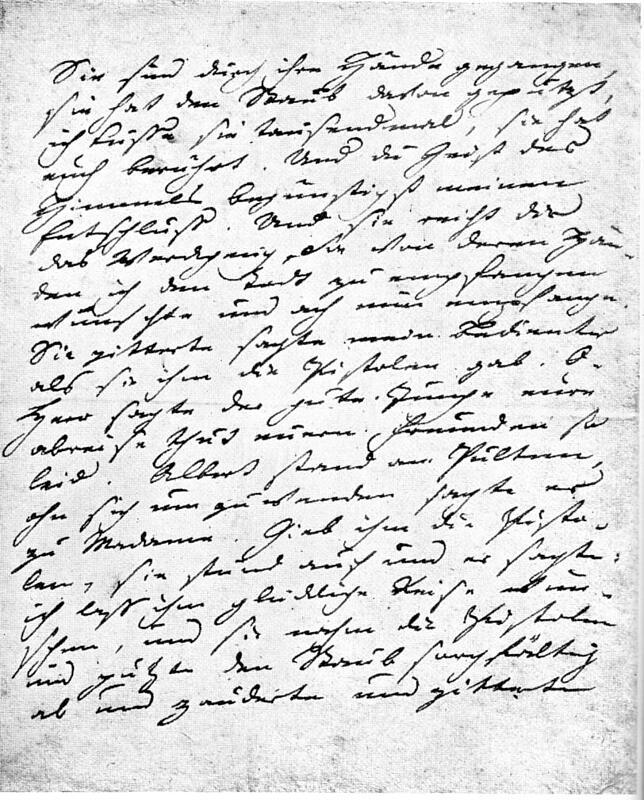 Sie sind durch ihre Hände gegangen
sie hat den Staub davon geputzt,
ich küsse sie tausendmal, sie hat
euch berührt. Und du Geist des
Himmels begünstigst meinen
Entschluss. Und sie reicht dir
das Werckzeug, Sie von deren Hän-
den ich den Todt zu empfangen
wünschte und ach nun empfange.
Sie zitterte sagte mein Bedienter
als sie ihm die Pistolen gab. O
Herr sagte der gute Junge eure
abreise thut euern Freunden so
leid. Albert stand am Pulten,
ohn sich um zu wenden sagte er
zu Madame. Gieb ihm die Pisto-
len, sie stund auf und er sagte:
ich lass ihm glückliche Reise wün-
schen, und sie nahm die Pistolen
und putzte den Staub sorgfältig
ab und zauderte und zitterte